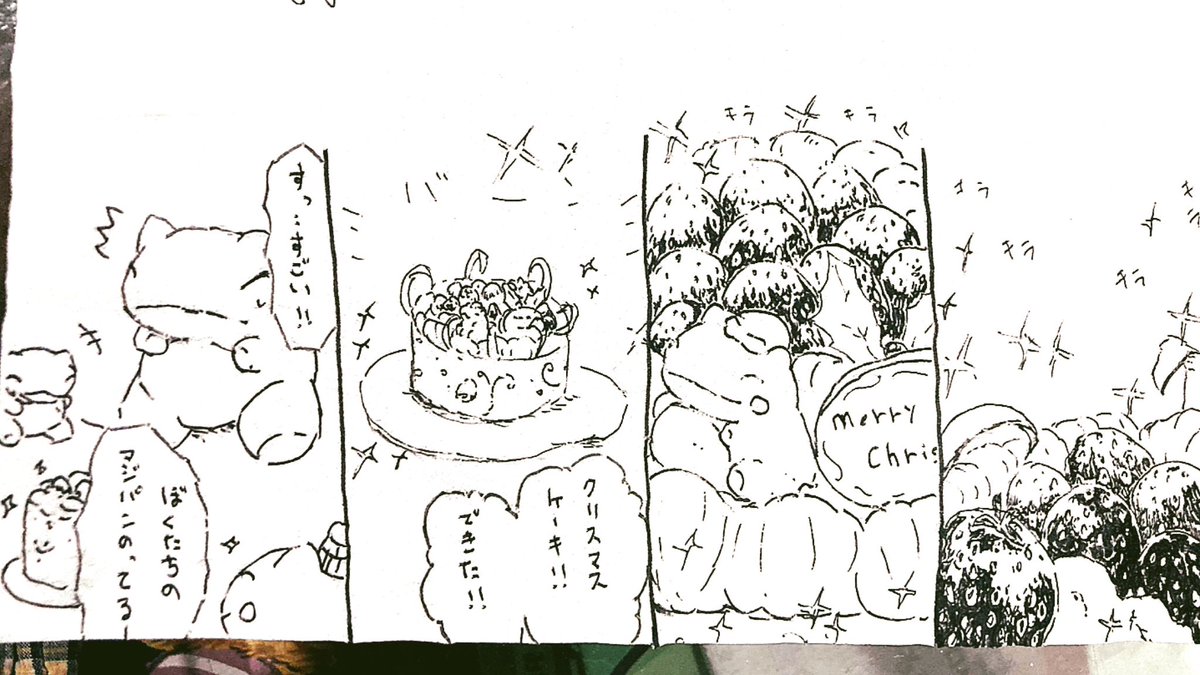 キラ
キラ
キラ
キラ
キラ
キラ
merry
Chris
バ
クリスマス
ケーキ!!
できた!!
すっ‥すごい!!
ぼくたちの
マジパンのってる